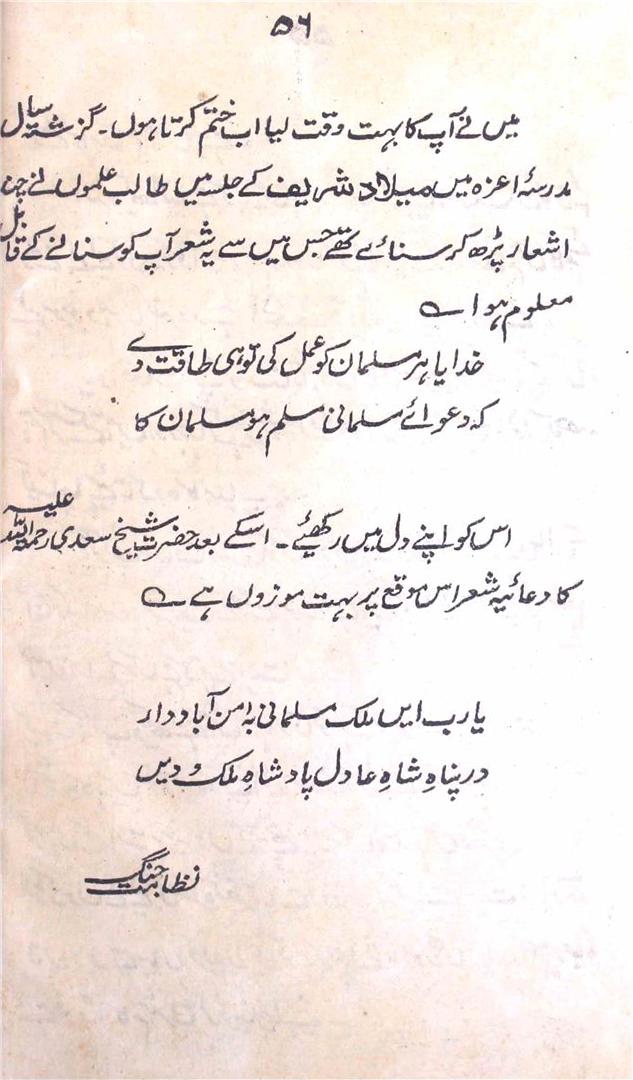 ۵۶
میں نے آپ کا بہت وقت لیا اب ختم کرتا ہوں۔ گزشتہ سال
مدرسۂ اعزہ میں میلاد شریف کے جلسہ میں طالب علموں نے چن
اشعار پڑھ کر سنائے تھے جس میں سے یہ شعر آپ کو سنانے کے قابل
معلوم ہوا ؎
خدایا ہر مسلمان کو عمل کی تو ہی طاقت دے
کہ دعوائے مسلمانی مسلم ہو مسلمان کا
اس کو اپنے دل میں رکھئیے۔ اسکے بعد حضرت شیخ سعدی رحمۃ اللہ علیہ
کا دعائیہ شعر اس موقع پر بہت موزوں ہے ؎
یارب ایں ملک مسلمانی بہ امن آباد دار
در پناہِ شاہِ عادل پادشاہِ ملک و دیں
نظامت جنگ